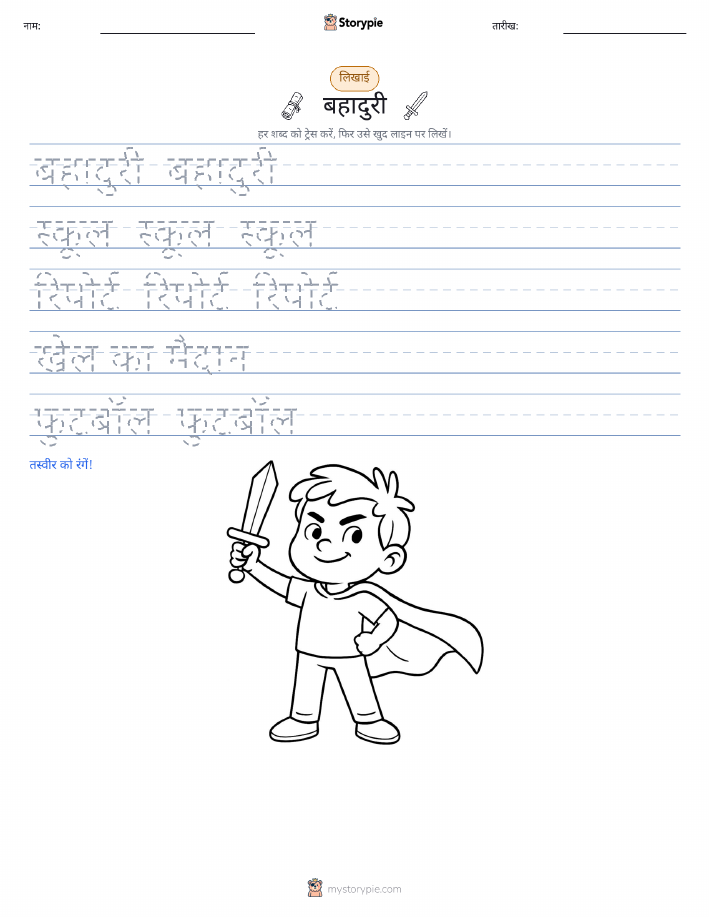 नाम: Storypie तारीख:
लिखाई
बहादुरी
हर शब्द को ट्रेस करें, फिर उसे खुद लाइन पर लिखें।
बहादुरी बहादुरी
स्कूल स्कूल स्कूल
रिपोर्ट रिपोर्ट रिपोर्ट
खेल का मैदान
फुटबॉल फुटबॉल
तस्वीर को रंगें!
mystorypie.com